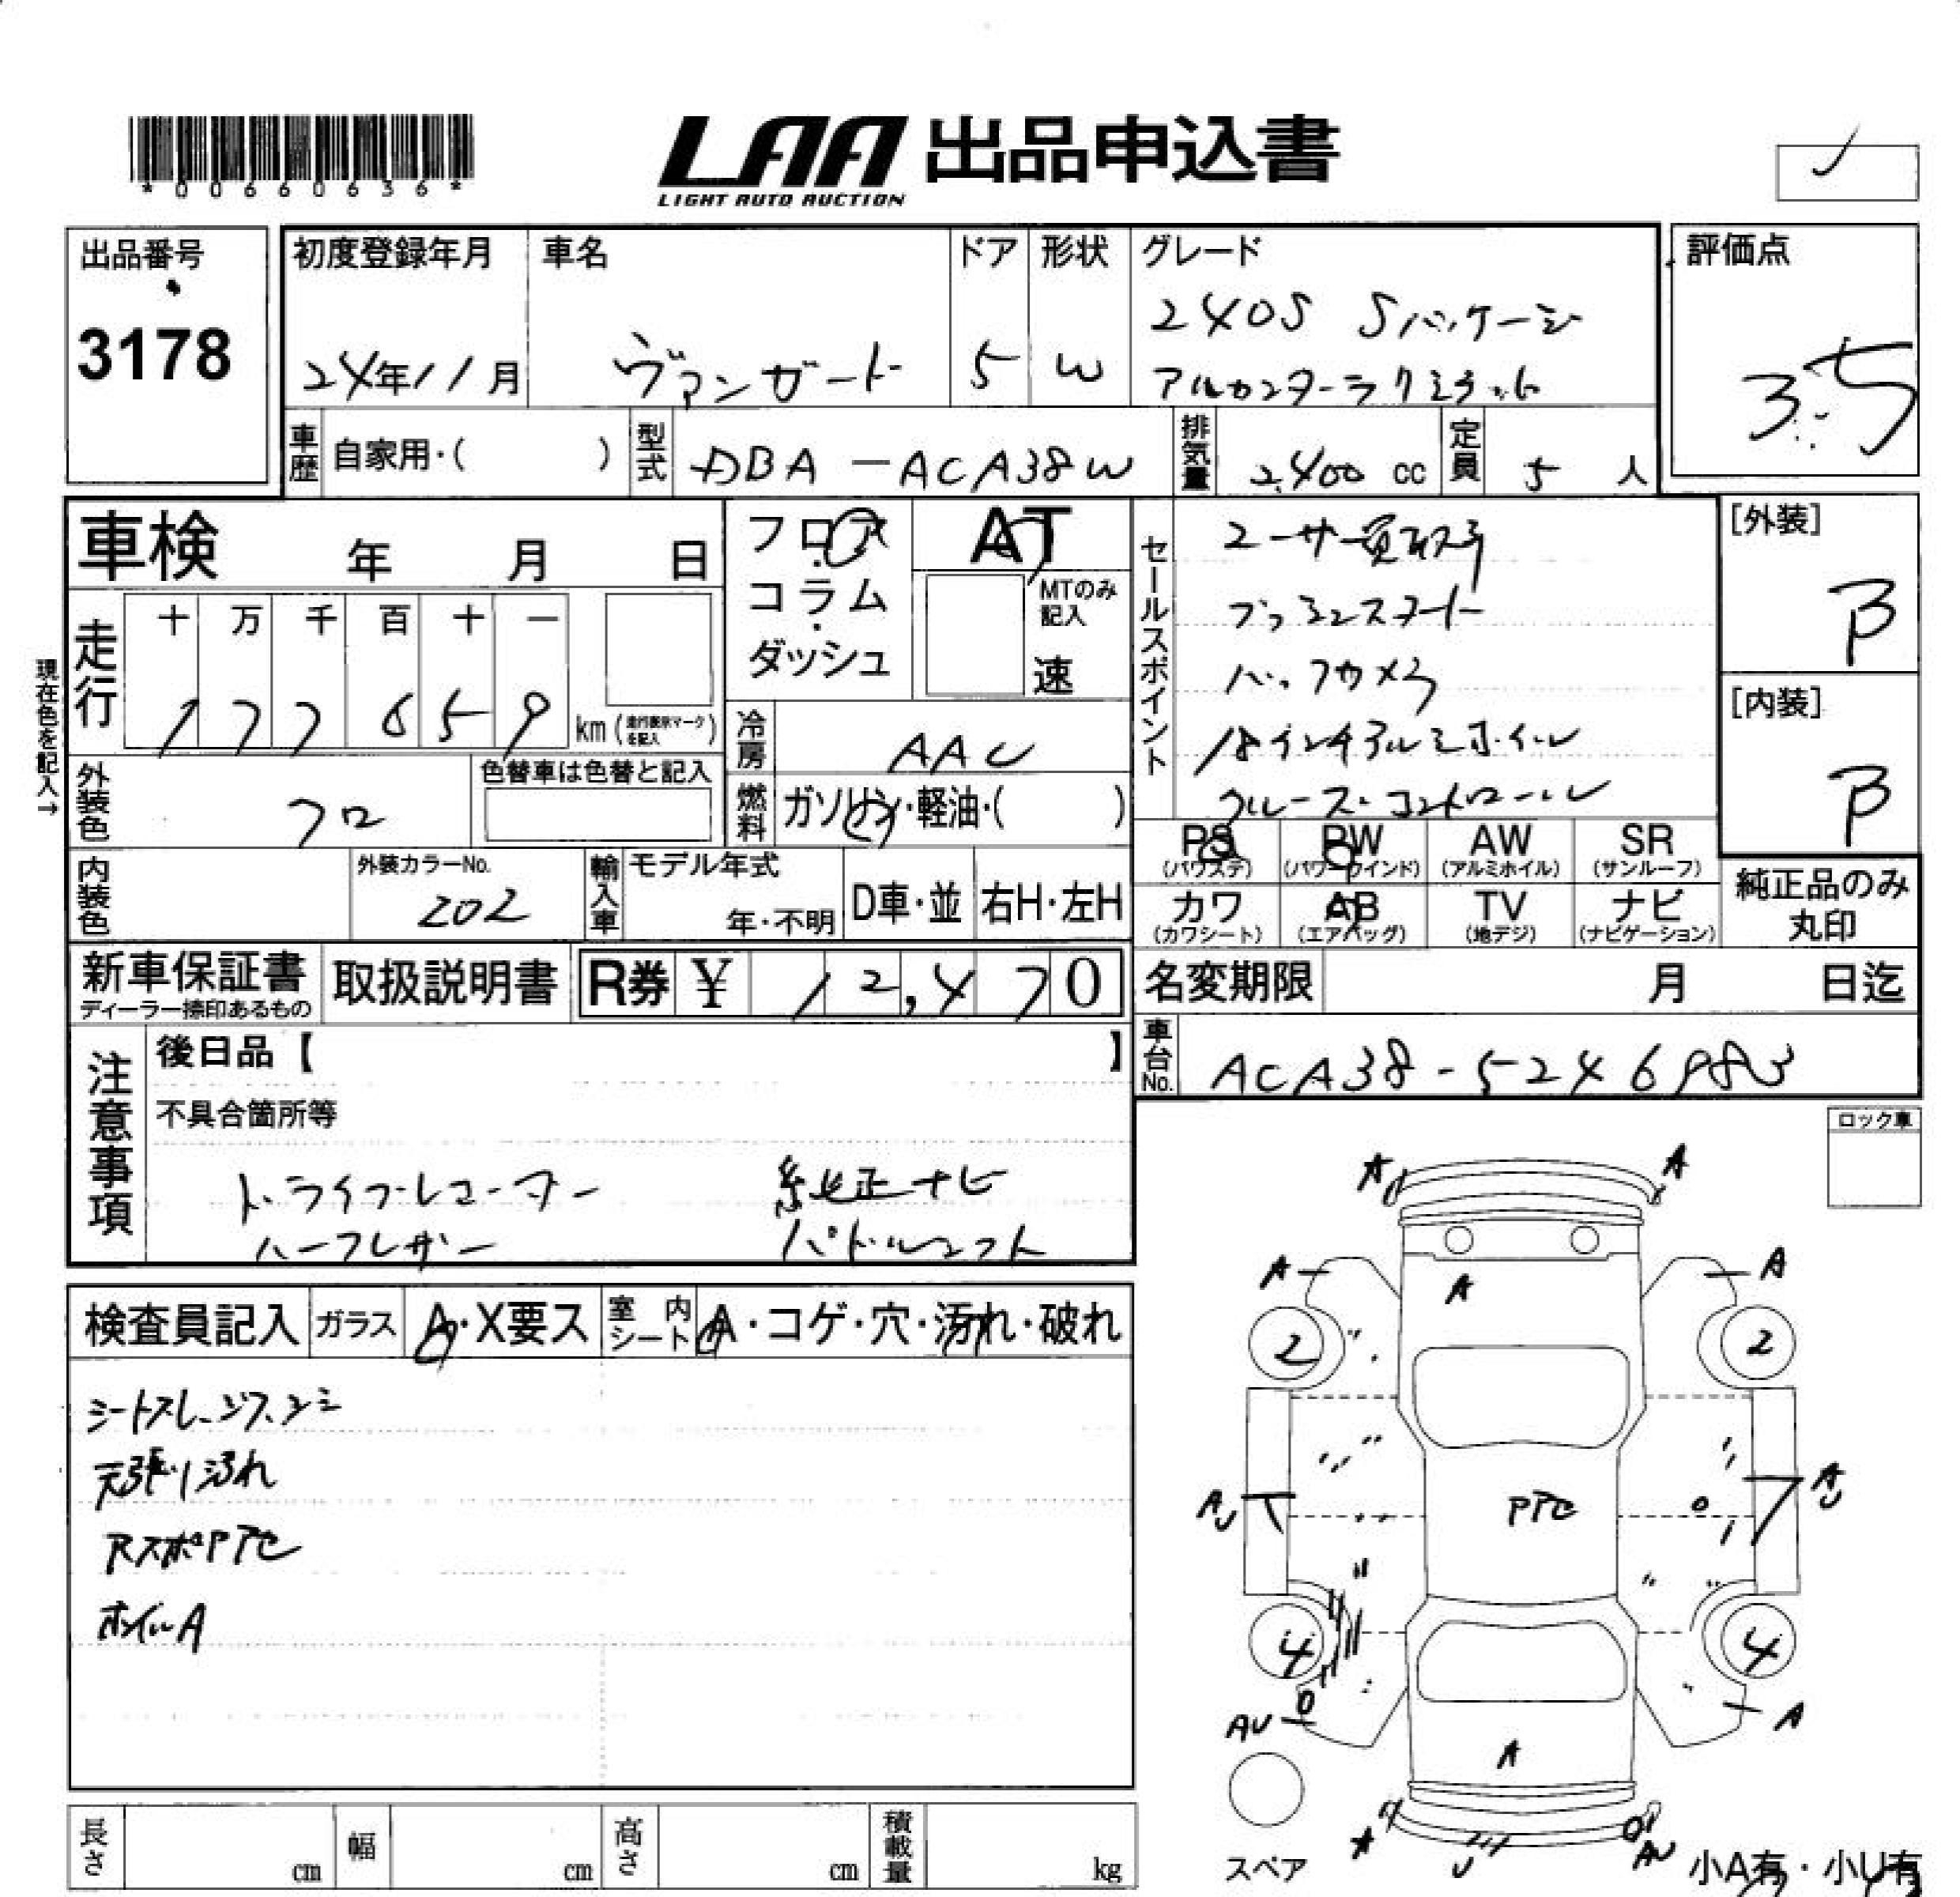 *00660636*
LAA 出品申込書
LIGHT AUTO AUCTION
出品番号
3178
初度登録年月
24年11月
車名
ヴァンガード
ドア
5
形状
W
グレード
240S Sパッケージ
アルカンターラリミテッド
評価点
3.5
車歴
自家用・( )
型式
DBA-ACA38W
排気量
2,400 cc
定員
5 人
車検 年 月 日
フロア
コラム
ダッシュ
AT
MTのみ
記入
速
現在色を記入→
走行
十 万 千 百 十 一
1 7 7 6 5 9
km (走行表示マークを記入)
冷房
AAC
外装色
クロ
色替車は色替と記入
燃料
ガソリン・軽油・( )
内装色
外装カラーNo.
202
輸入車
モデル年式
年・不明
D車・並
右H・左H
セールスポイント
ユーザー買取車
プッシュスタート
バックカメラ
18インチアルミホイール
クルーズ・コントロール
[外装]
B
[内装]
B
PS PW AW SR
(パワステ) (パワーウインド) (アルミホイル) (サンルーフ)
カワ AB TV ナビ
(カワシート) (エアバッグ) (地デジ) (ナビゲーション)
純正品のみ
丸印
新車保証書
ディーラー捺印あるもの
取扱説明書
R券 ¥ 12,470
名変期限 月 日迄
車台No.
ACA38-5246983
注意事項
後日品【 】
不具合箇所等
ドライブレコーダー 純正ナビ
ハーフレザー パドルシフト
ロック車
検査員記入
ガラス
A・X要ス
室内シート
A・コゲ・穴・汚れ・破れ
天張り汚れ
RスポPTセ
ホイルA
A A
A A
A
2 2
AU AU
PTセ
4 4
AU A
A
A U AU
スペア
小A有・小U有
長さ cm
幅 cm
高さ cm
積載量 kg